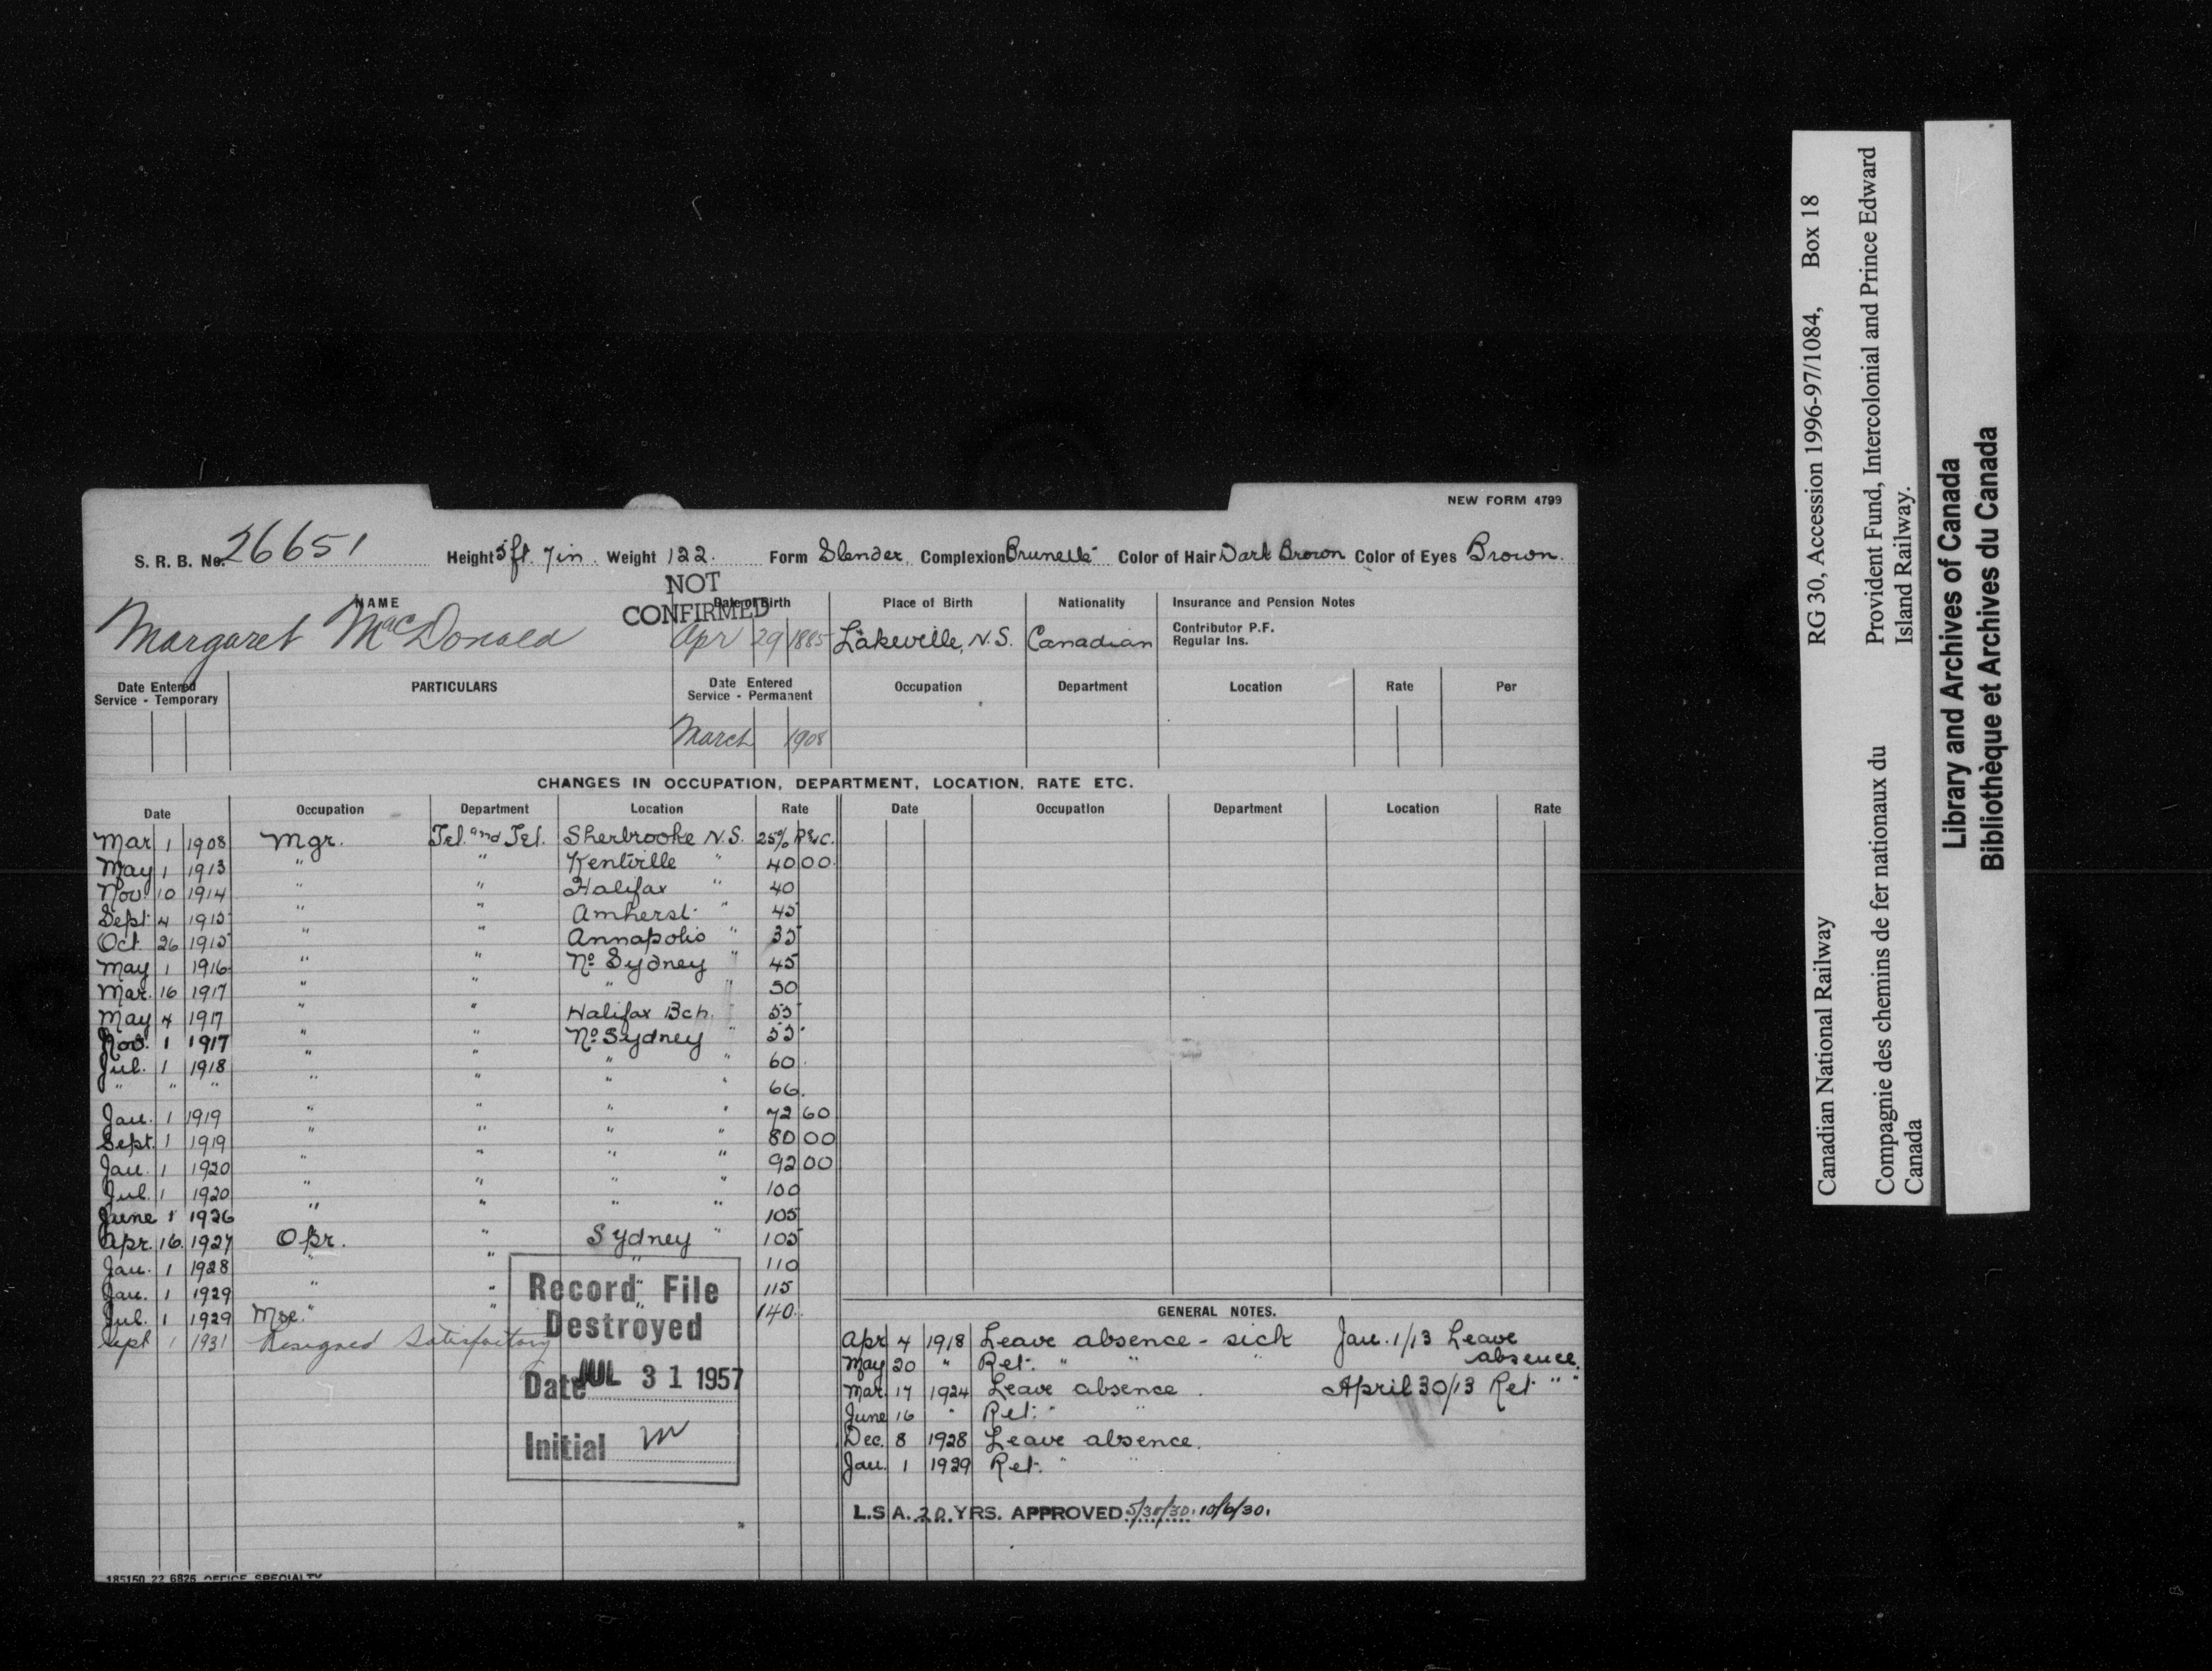 NEW FORM 4799
S. R. B. No. 26651 Height 5 ft. 7 in. Weight 122. Form Slender. Complexion Brunette Color of Hair Dark Brown Color of Eyes Brown.
NOT
CONFIRMED
NAME Date of Birth Place of Birth Nationality Insurance and Pension Notes
Margaret MacDonald Apr 29 1885 Lakeville, N.S. Canadian
Contributor P.F.
Regular Ins.
Date Entered Service - Temporary PARTICULARS Date Entered Service - Permanent Occupation Department Location Rate Per
March 1908
CHANGES IN OCCUPATION, DEPARTMENT, LOCATION, RATE ETC.
Date Occupation Department Location Rate Date Occupation Department Location Rate
Mar 1 1908 Mgr. Tel. and Tel. Sherbrooke N.S. 25%
May 1 1913 " " Kentville " 40 00
Nov. 10 1914 " " Halifax " 40
Sept 4 1915 " " Amherst " 45
Oct. 26 1915 " " Annapolis " 35
May 1 1916 " " No Sydney " 45
Mar. 16 1917 " " " " 50
May 4 1917 " " Halifax Bch. " 55
Nov. 1 1917 " " No Sydney " 55
Jul. 1 1918 " " " " 60
" " " " " " " 66
Jan. 1 1919 " " " " 72 60
Sept. 1 1919 " " " " 80 00
Jan. 1 1920 " " " " 92 00
Jul. 1 1920 " " " " 100
June 1 1926 " " " " 105
Apr. 16 1927 Opr. " Sydney " 105
Jan. 1 1928 " " " 110
Jan. 1 1929 " " " 115
Jul. 1 1929 " " " 140
Sept 1 1931 Resigned Satisfactory
Record File
Destroyed
Date JUL 31 1957
Initial
GENERAL NOTES.
Apr 4 1918 Leave absence - sick Jan. 1/13 Leave
May 20 " Ret. " " " absence.
Mar. 17 1924 Leave absence. April 30/13 Ret " "
June 16 " Ret. " "
Dec. 8 1928 Leave absence.
Jan. 1 1929 Ret. " "
L.S.A. 20 YRS. APPROVED 5/30/30. 10/6/30.
185150 22 6826 OFFICE SPECIALTY
RG 30, Accession 1996-97/1084, Box 18
Canadian National Railway Provident Fund, Intercolonial and Prince Edward
Island Railway.
Compagnie des chemins de fer nationaux du
Canada
Library and Archives of Canada
Bibliothèque et Archives du Canada